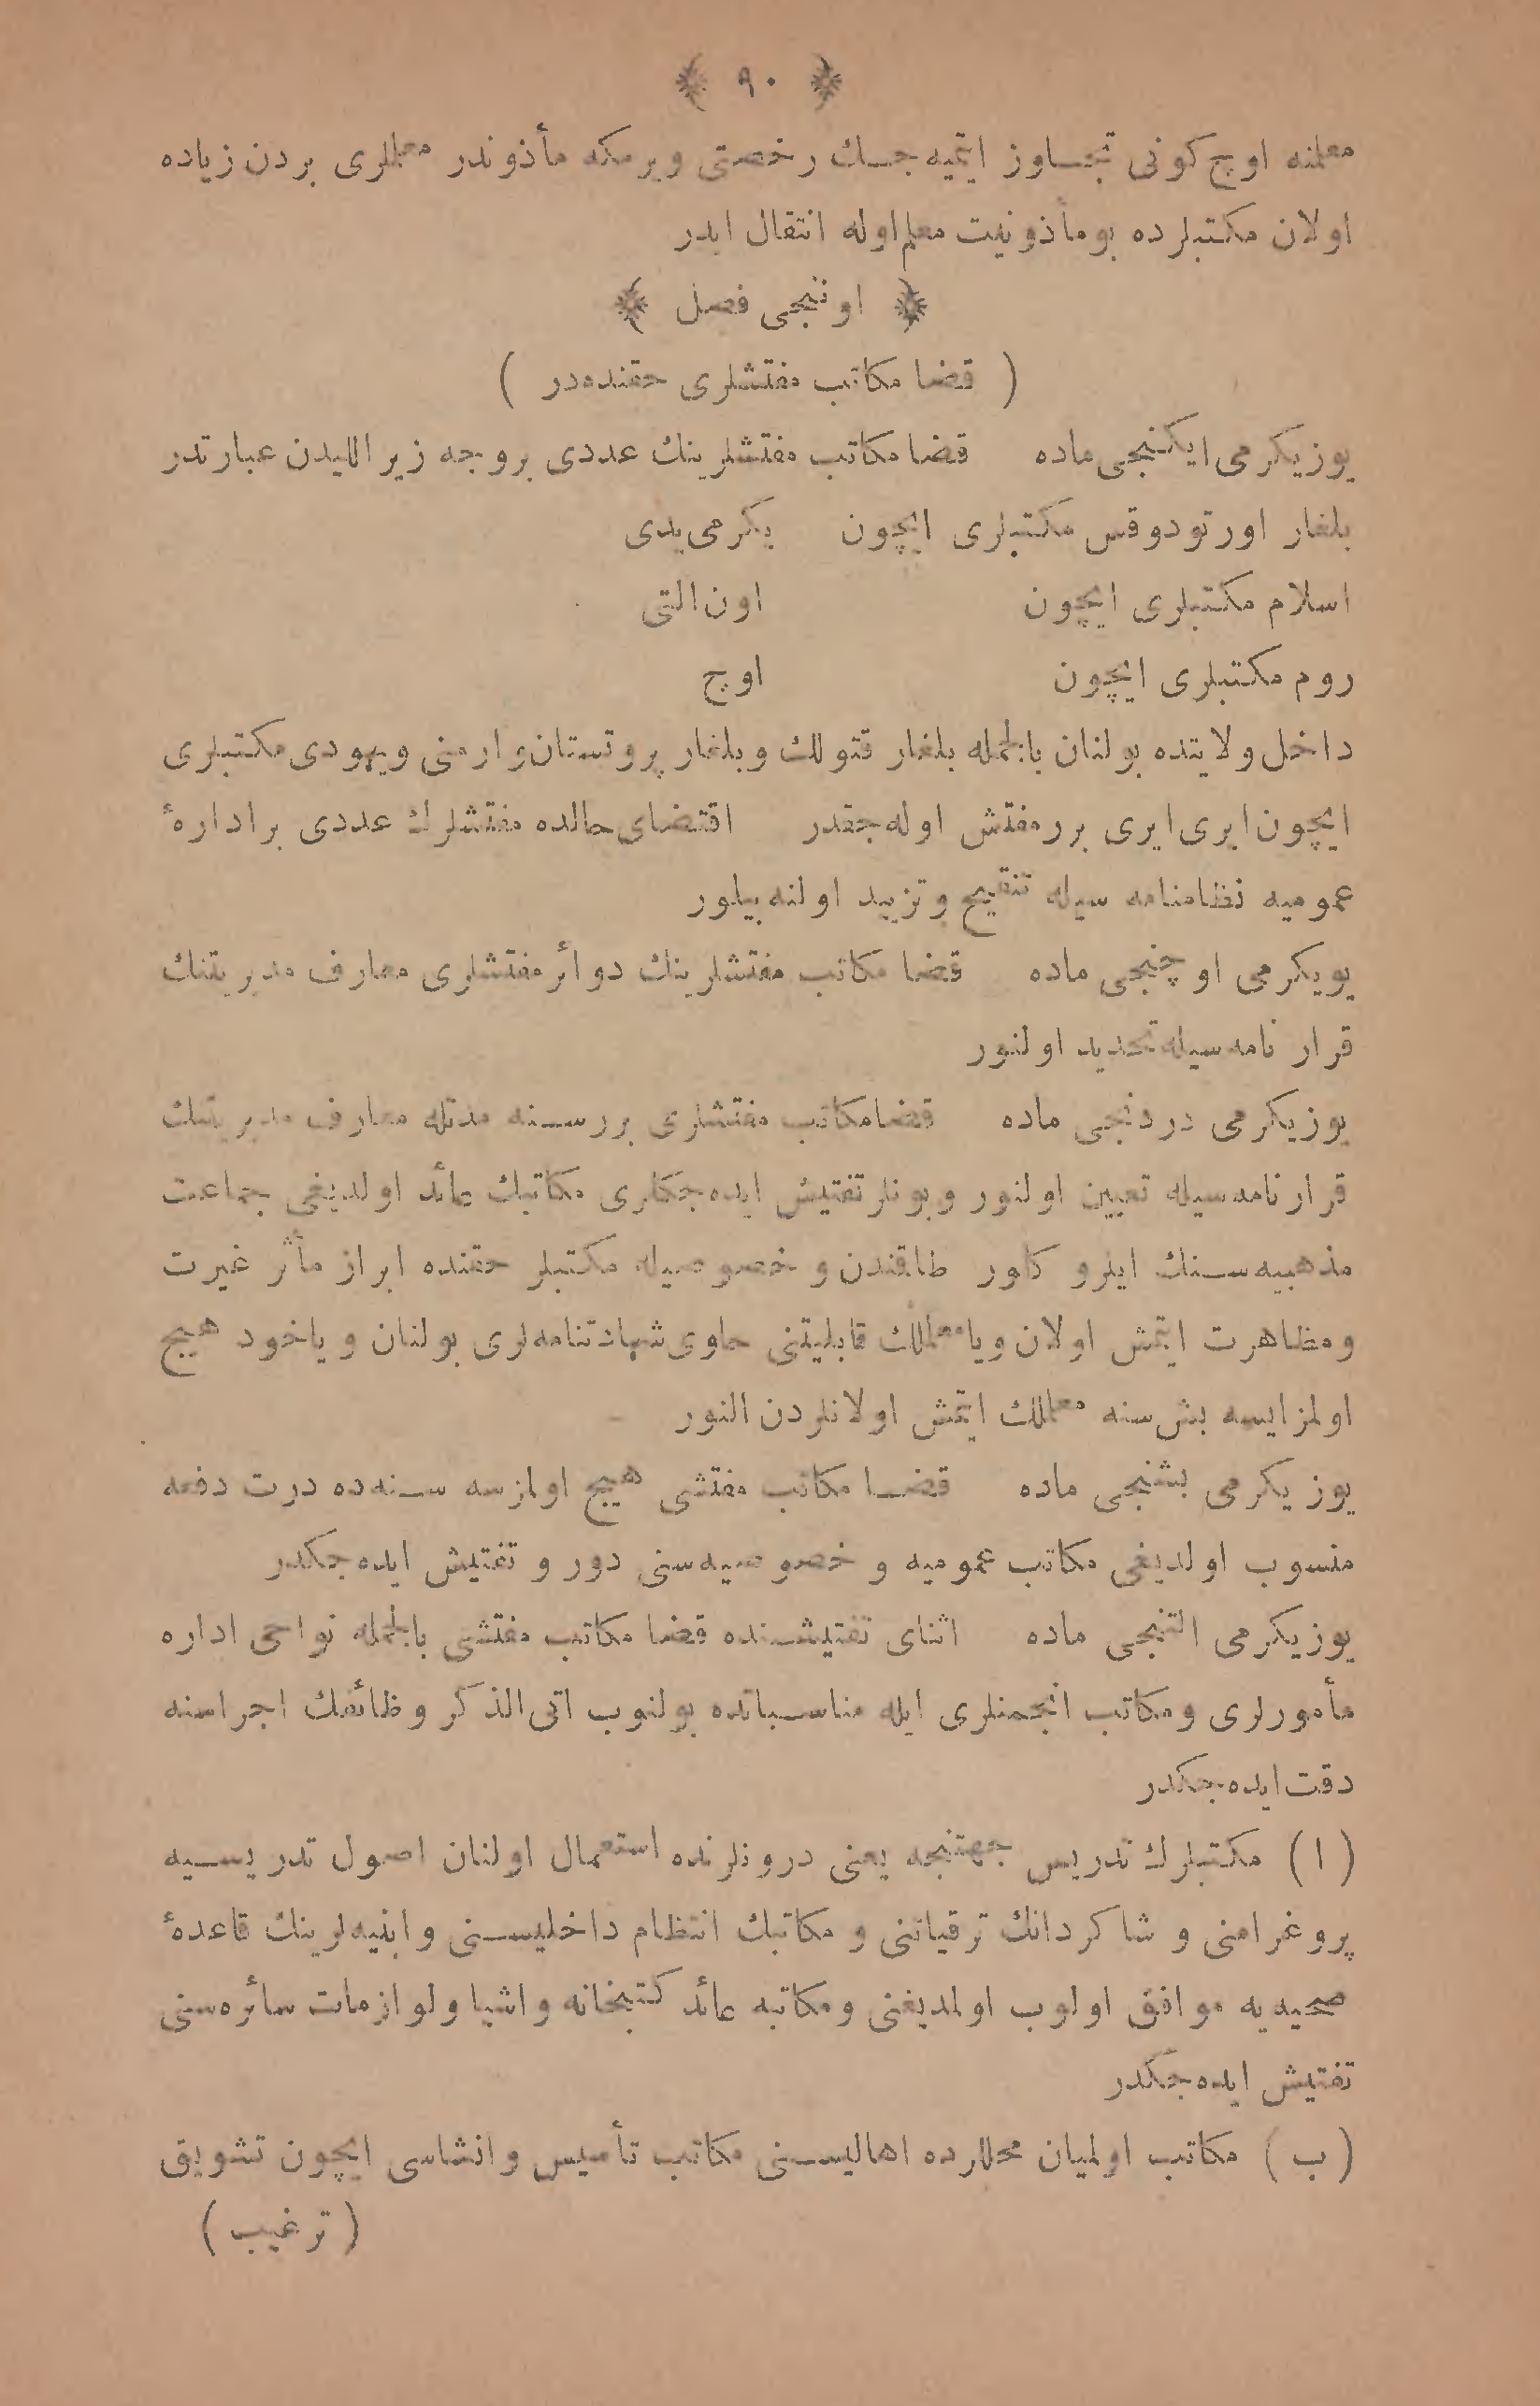 ﴿ ٩٠ ﴾
معلمنه اوچ كونی تجـاوز ایتمیه‌جـك رخصتی ویرمكه مأذوندر معلملری بردن زیاده
اولان مكتبلرده بومأذونیت معلم‌اوله انتقال ایدر
﴿ اوننجی فصل ﴾
( قضا مكاتب مفتشلری حقنده‌در )
یوزیكرمی‌ایكنجی‌ماده قضامكاتب مفتشلرینك عددی بروجه زیراللیدن عبارتدر
بلغار اورتودوقس مكتبلری ایچون یكرمی‌یدی
اسلام مكتبلری ایچون اون‌التی
روم مكتبلری ایچون اوچ
داخل‌ولایتده بولنان بالجمله بلغار قتولك وبلغار پروتستان‌وارمنی ویهودی‌مكتبلری
ایچون‌ایری‌ایری بررمفتش اوله‌جقدر اقتضای‌حالده مفتشلرك عددی براداره‌ٔ
عمومیه نظامنامه سیله تنقیح وتزیید اولنه‌بیلور
یویكرمی اوچنجی ماده قضا مكاتب مفتشلرینك دوائرمفتشلری معارف مدیریتنك
قرار نامه‌سیله‌تحدید اولنور
یوزیكرمی دردنجی ماده قضامكاتب مفتشلری بررسـنه مدتله معارف مدیریتنك
قرارنامه‌سیله تعیین اولنور وبونلرتفتیش ایده‌جكلری مكاتبك عائد اولدیغی جماعت
مذهبیه‌سـنك ایلرو كلور طاقندن و خصوصیله مكتبلر حقنده ابراز مأثر غیرت
ومظاهرت ایتمش اولان ویامعلملك قابلیتنی حاوی‌شهادتنامه‌لری بولنان ویاخود هیچ
اولمزایسه بش‌سنه معلملك ایتمش اولانلردن النور
یوز یكرمی بشنجی ماده قضـا مكاتب مفتشی هیچ اولمزسه سـنه‌ده درت دفعه
منسوب اولدیغی مكاتب عمومیه و خصوصیه‌سنی دور و تفتیش ایده‌جكدر
یوزیكرمی التنجی ماده اثنای تفتیشـنده قضا مكاتب مفتشی بالجمله نواحی اداره
مأمورلری ومكاتب انجمنلری ایله مناسـباتده بولنوب اتی‌الذكر وظائفك اجراسنه
دقت‌ایده‌جكدر
( ا ) مكتبلرك تدریس جهتنجه یعنی درونلرنده استعمال اولنان اصول تدریسـیه
پروغرامنی و شاكردانك ترقیاتنی و مكاتبك انتظام داخلیسـنی وابنیه‌لرینك قاعده‌ٔ
صحیه‌یه موافق اولوب اولمدیغنی ومكاتبه عائد كتبخانه واشیا ولوازمات سائره‌سنی
تفتیش ایده‌جكدر
( ب ) مكاتب اولمیان محللرده اهالیسـنی مكاتب تأسیس وانشاسی ایچون تشویق
( ترغیب )